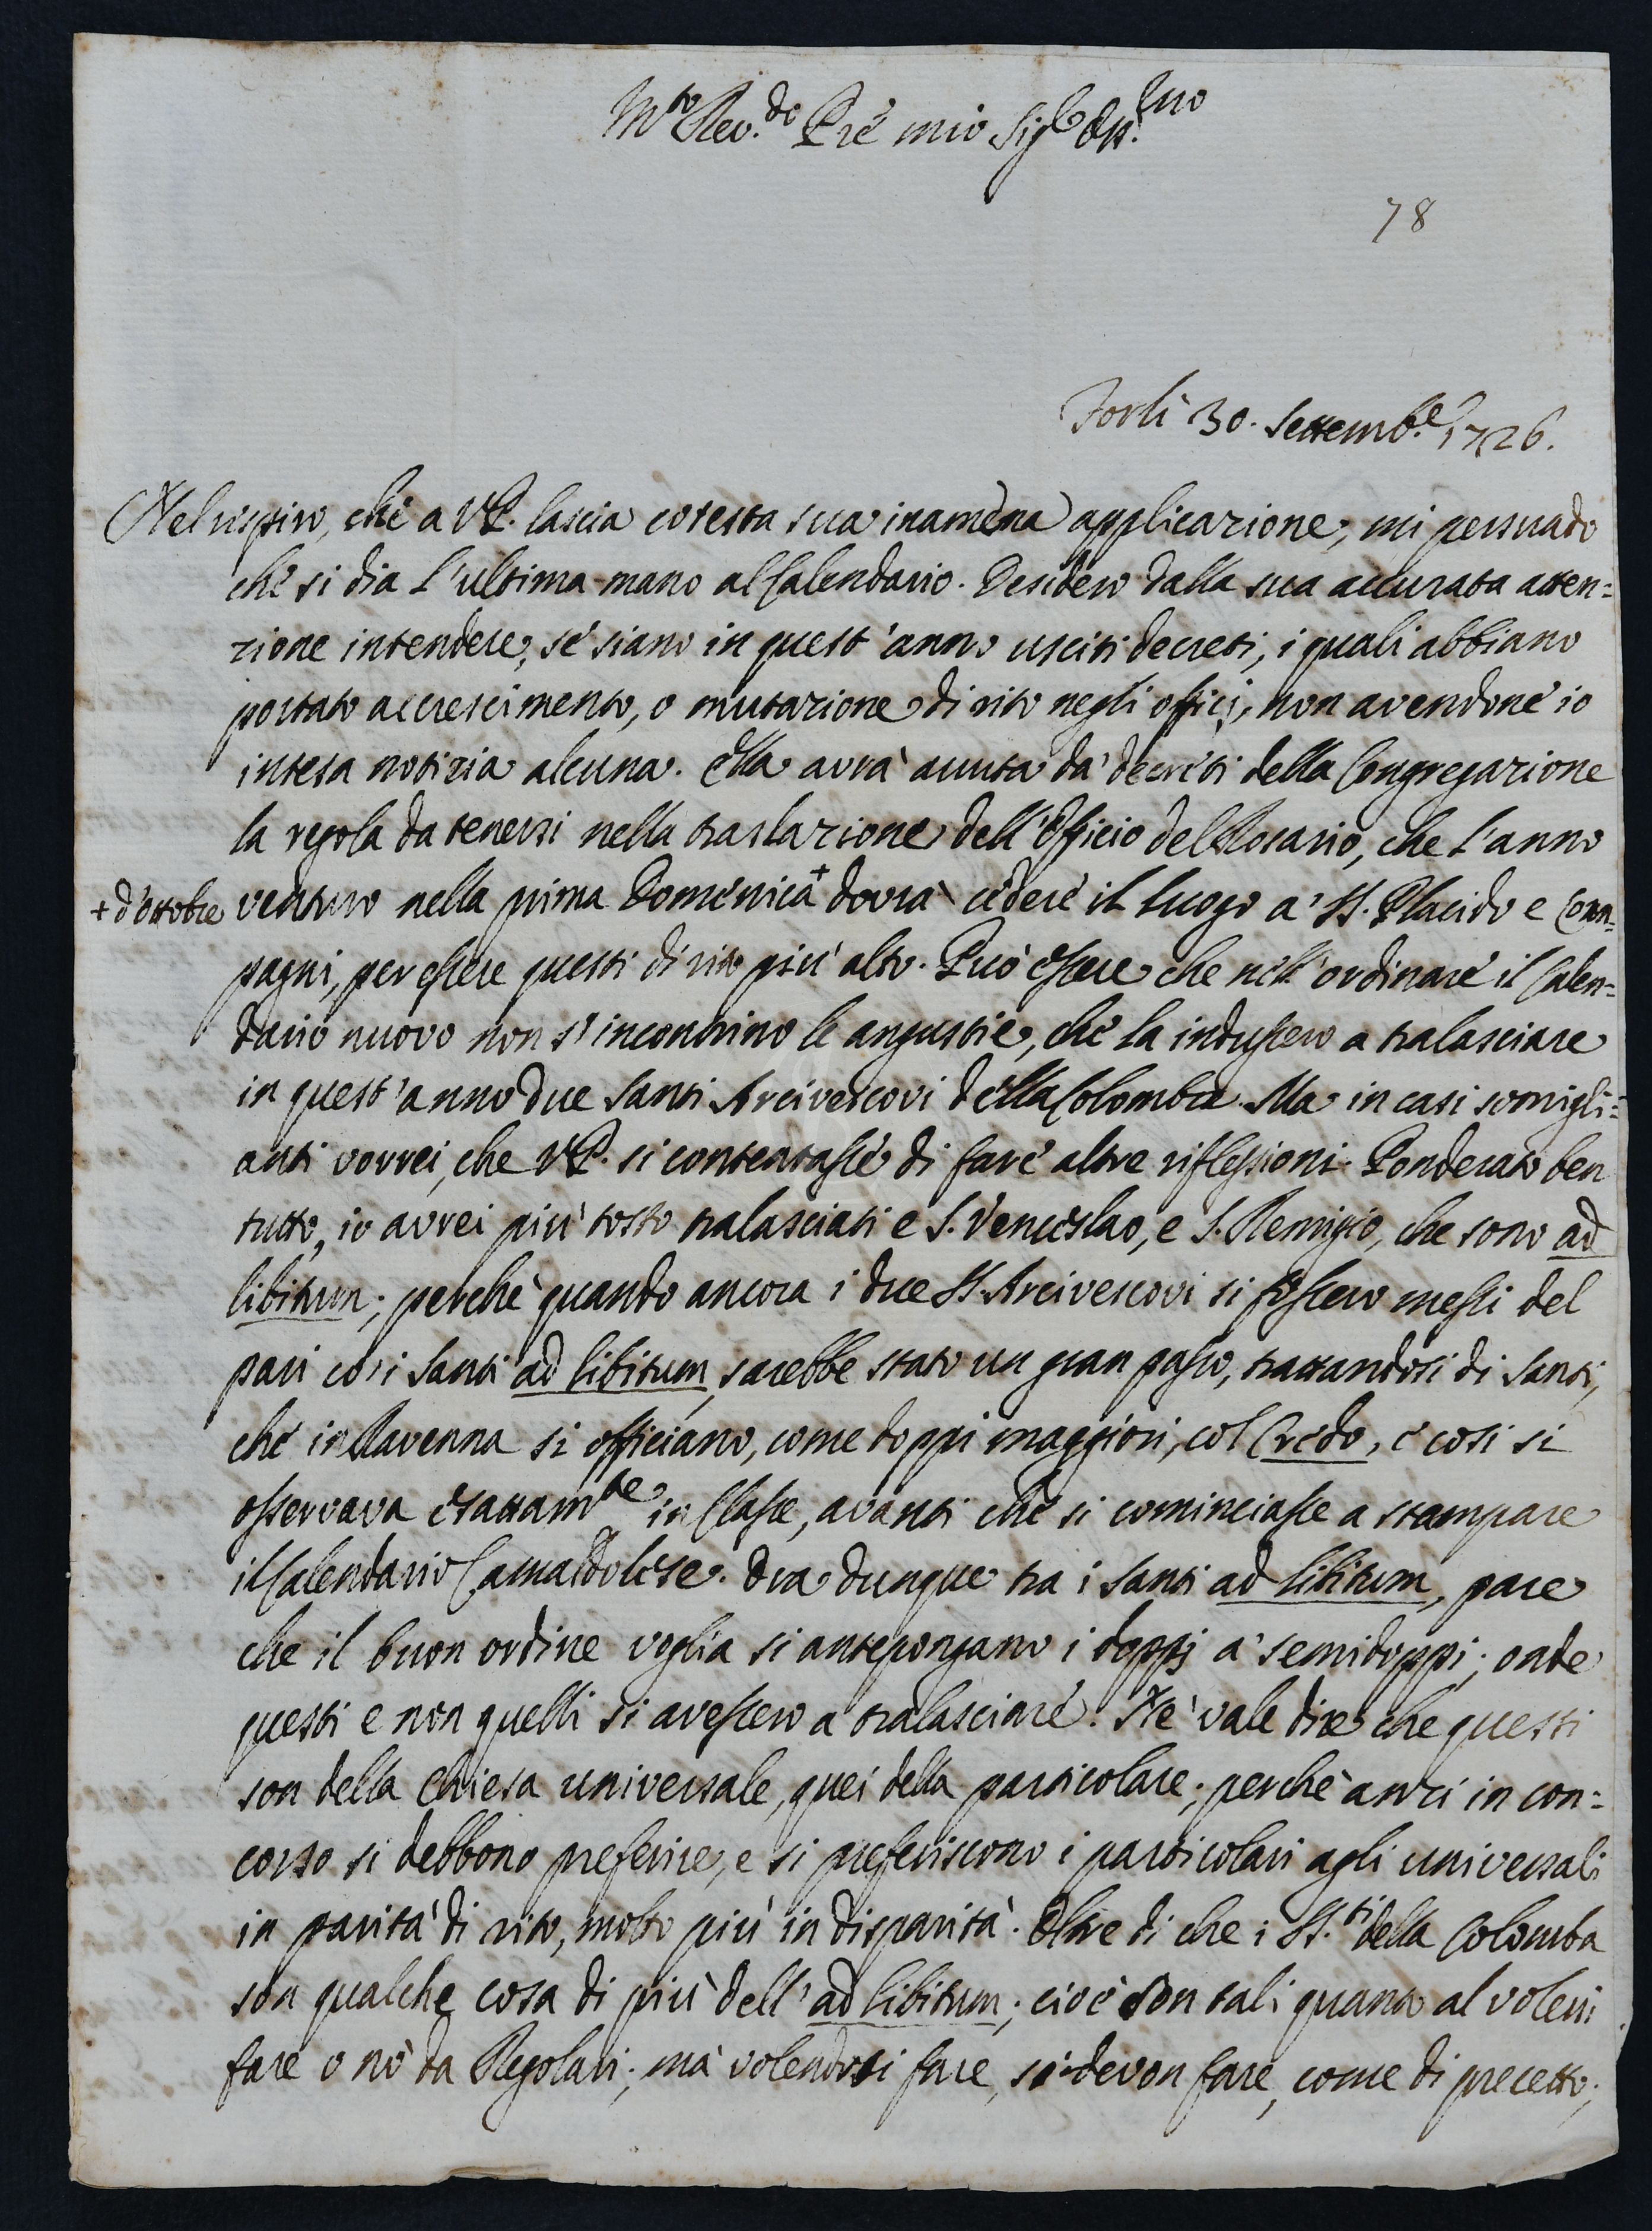 M.to Rev.do Pré mio Sig.e Oss.mo
78
Forlì 30. Settemb.e 1726.
Nel respiro, che a VP. lascia cotesta sua inamena applicazione, mi persuado
che si dia l'ultima mano al Calendario. Desidero dalla sua accurata atten=
zione intendere, se siano in quest'anno usciti decreti, i quali abbiano
portato accrescimento, o mutazione di rito negli officj, non avendone io
intesa notizia alcuna. Ella avrà avuta da' decreti della Congregazione
la regola da tenersi nella traslazione dell'Officio del Rosario, che l'anno
+ d'Ottobre venturo nella prima Domenica + dovrà cedere il luogo a' SS. Placido e Com=
pagni, per essere questi di rito più alto. Può essere che nell'ordinare il Calen=
dario nuovo non s'incontrino le angustie, che la indussero a tralasciare
in quest'anno due Santi Arcivescovi della Colomba. Ma in casi somigli=
anti vorrei, che VP. si contentasse di fare altre riflessioni. Ponderato ben
tutto, io avrei più tosto tralasciati e S. Venceslao, e S. Remigio, che sono ad
libitum; perchè quando ancora i due SS. Arcivescovi si fossero messi del
pari co' i Santi ad libitum, sarebbe stato un gran passo, trattandosi di Santi,
che in Ravenna si officiano, come doppi maggiori, col Credo, e così si
osservava esattam.te in Classe, avanti che si cominciasse a stampare
il Calendario Camaldolese. Ora dunque tra i Santi ad libitum, pare
che il buon ordine voglia si antepongano i doppj a' semidoppi; onde
questi e non quelli si avessero a tralasciare. Nè vale dire che questi
son della Chiesa universale, quei della particolare; perchè anzi in con=
corso si debbono preferire, e si preferiscono i particolari agli universali
in parità di rito, molto più in disparità. Oltre di che i SS.ti della Colomba
son qualche cosa di più dell'ad libitum; cioè son tali quanto al volersi
fare o nò da Regolari; mà volendosi fare, si devon fare, come di precetto;